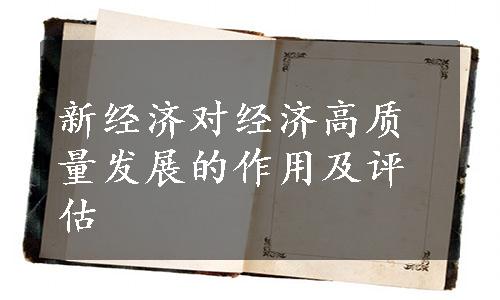 新经济对经济高质
量发展的作用及评
估